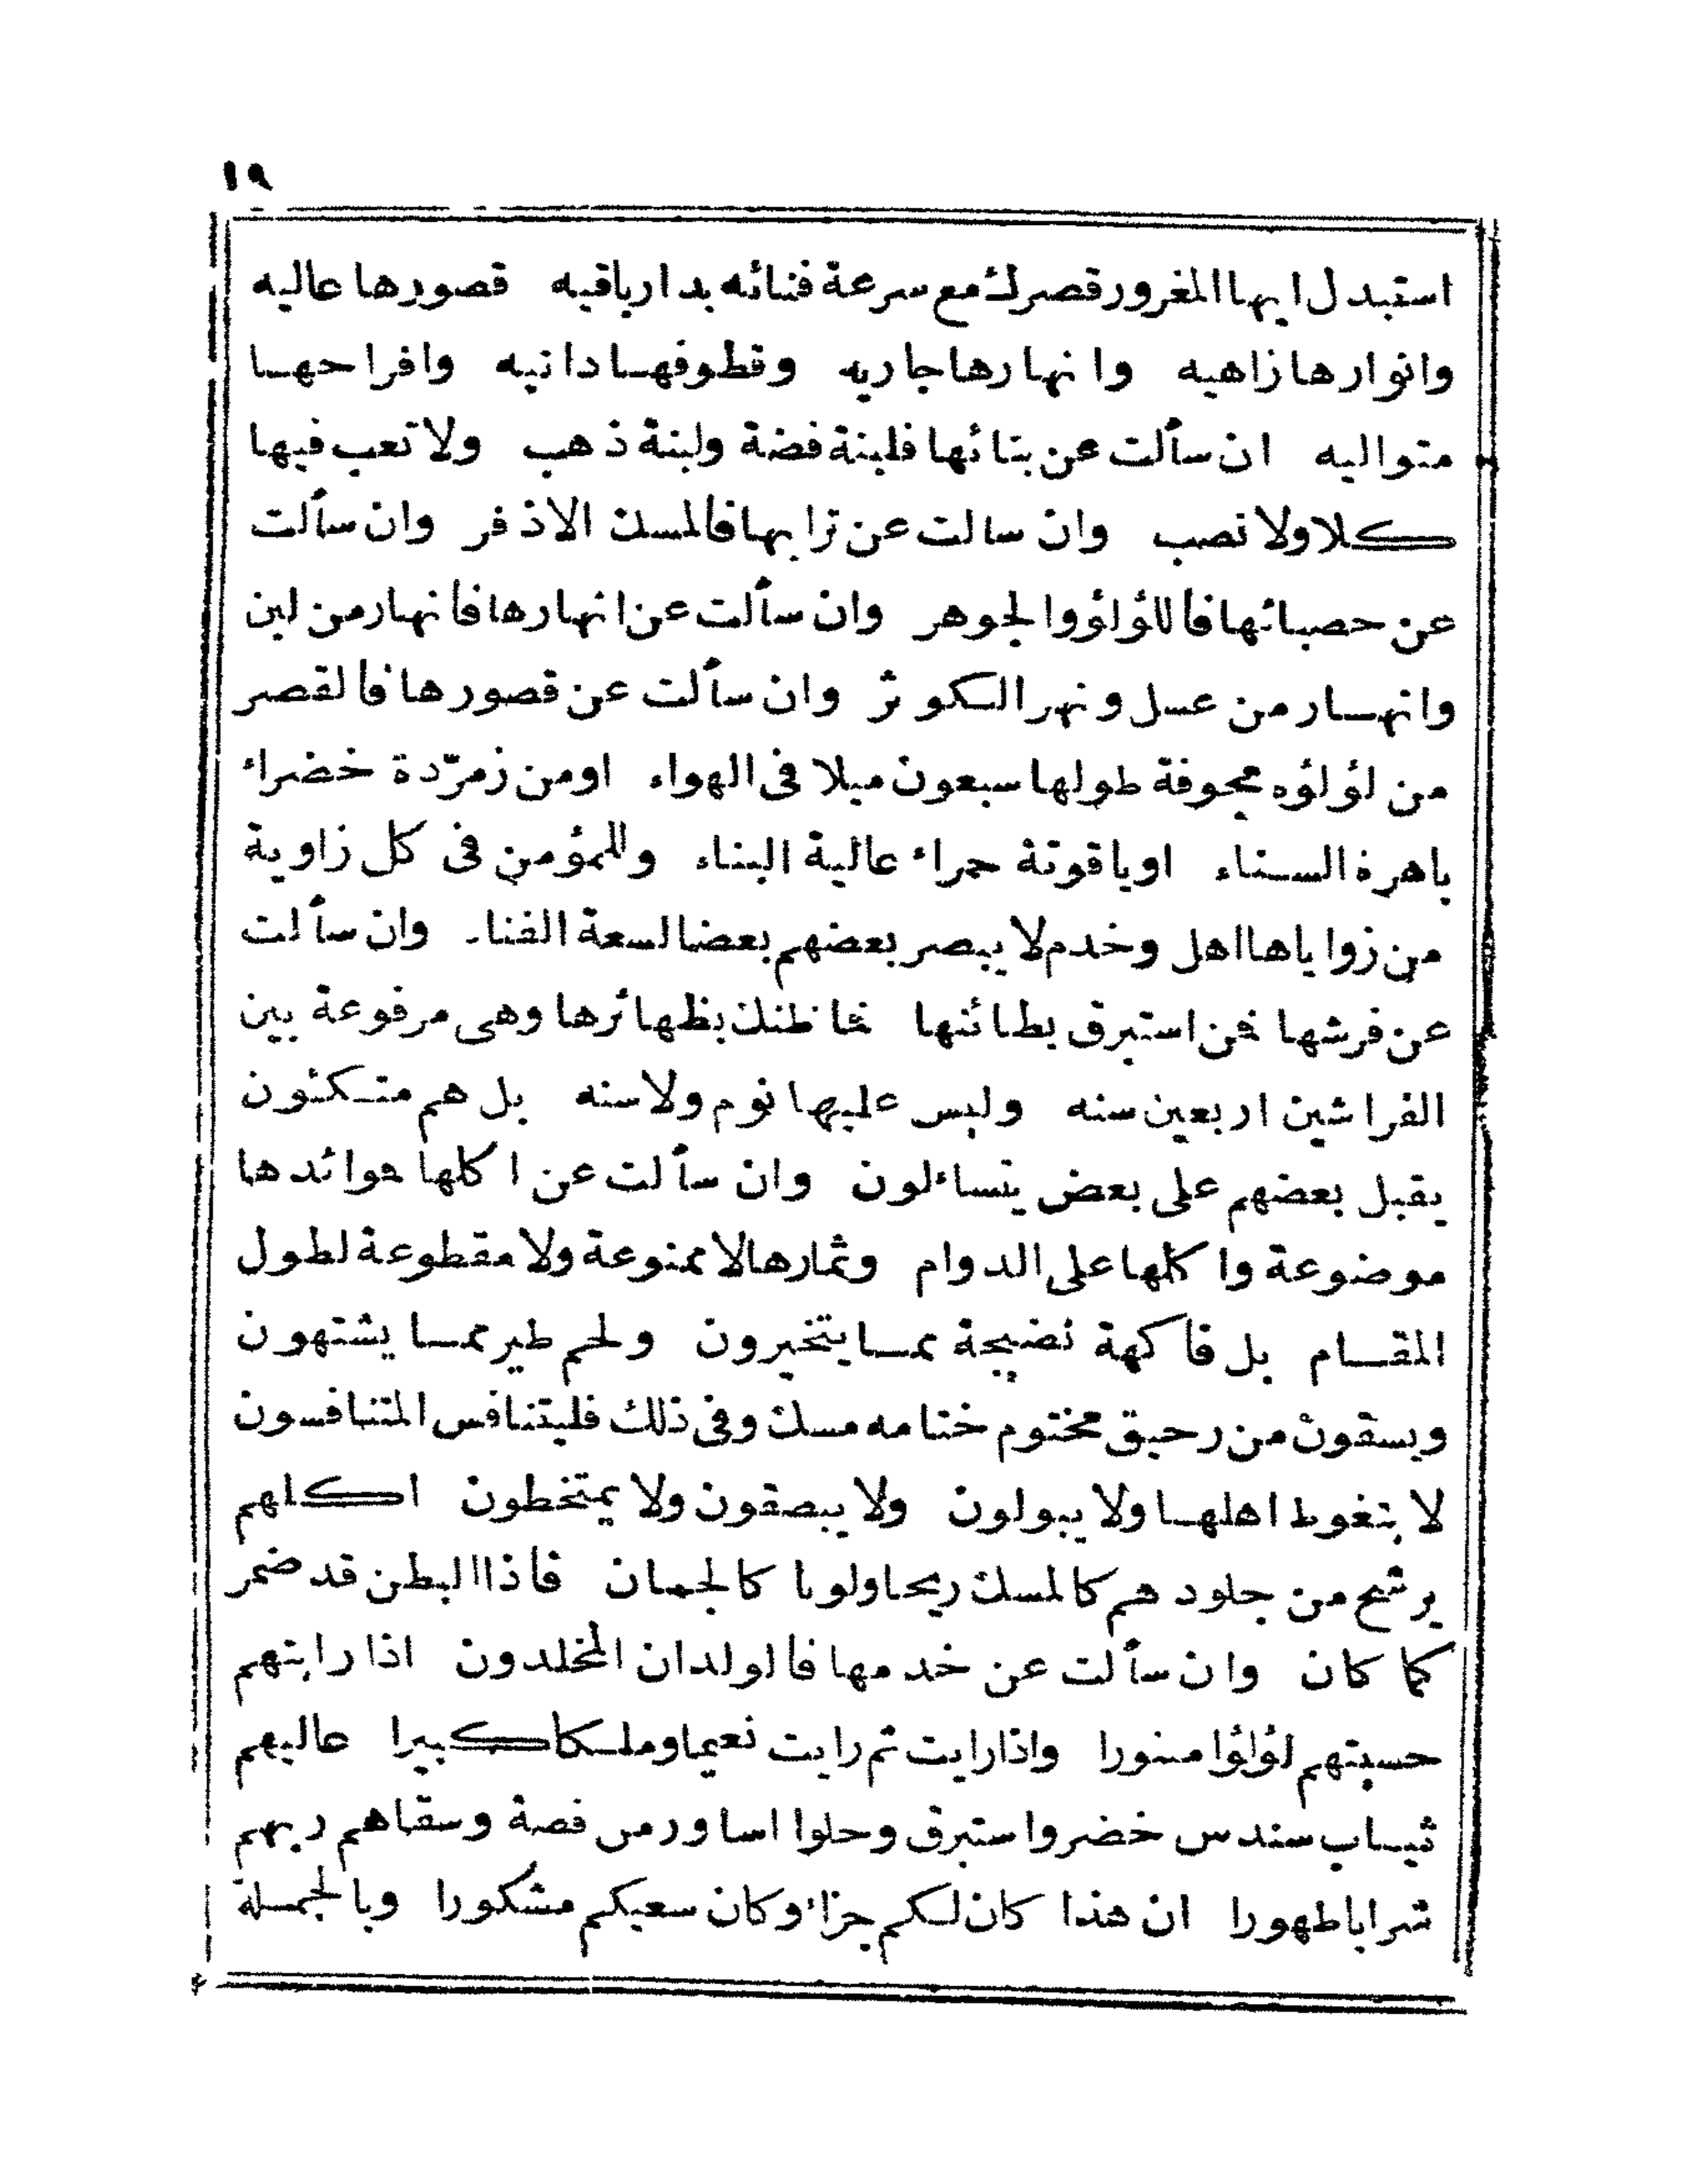 ١٩
استبدل ايها المغرور قصرك مع سرعة فنائه بدار باقيه قصورها عاليه
وانوارها زاهيه وانهارها جاريه وقطوفها دانيه وافراحها
متواليه ان سألت عن بنائها فلبنة فضة ولبنة ذهب ولا تعب فيها
كلا ولا نصب وان سالت عن ترابها فالمسك الاذفر وان سألت
عن حصبائها فاللؤلؤ والجوهر وان سألت عن انهارها فانهار من لبن
وانهار من عسل ونهر الكوثر وان سألت عن قصورها فالقصر
من لؤلؤه مجوفة طولها سبعون ميلا فى الهواء او من زمرّدة خضراء
باهرة السناء او ياقوتة حمراء عالية البناء وللمؤمن فى كل زاوية
من زواياها اهل وخدم لا يبصر بعضهم بعضا لسعة الفناء وان سألت
عن فرشها فمن استبرق بطائنها فما ظنك بظهائرها وهى مرفوعة بين
الفراشين اربعين سنه وليس عليها نوم ولا سنه بل هم متكئون
يقبل بعضهم على بعض يتساءلون وان سألت عن اكلها فموائدها
موضوعة واكلها على الدوام وثمارها لا ممنوعة ولا مقطوعة لطول
المقام بل فاكهة نضيجة مما يتخيرون ولحم طير مما يشتهون
ويسقون من رحيق مختوم ختامه مسك وفى ذلك فليتنافس المتنافسون
لا يتغوط اهلها ولا يبولون ولا يبصقون ولا يمتخطون اكلهم
يرشح من جلودهم كالمسك ريحا ولونا كالجمان فاذا البطن قد ضمر
كما كان وان سألت عن خدمها فالولدان المخلدون اذا رايتهم
حسبتهم لؤلؤا منثورا واذا رايت ثم رايت نعيما وملكا كبيرا عاليهم
ثياب سندس خضر واستبرق وحلوا اساور من فضة وسقاهم ربهم
شرابا طهورا ان هذا كان لكم جزاء وكان سعيكم مشكورا وبالجملة